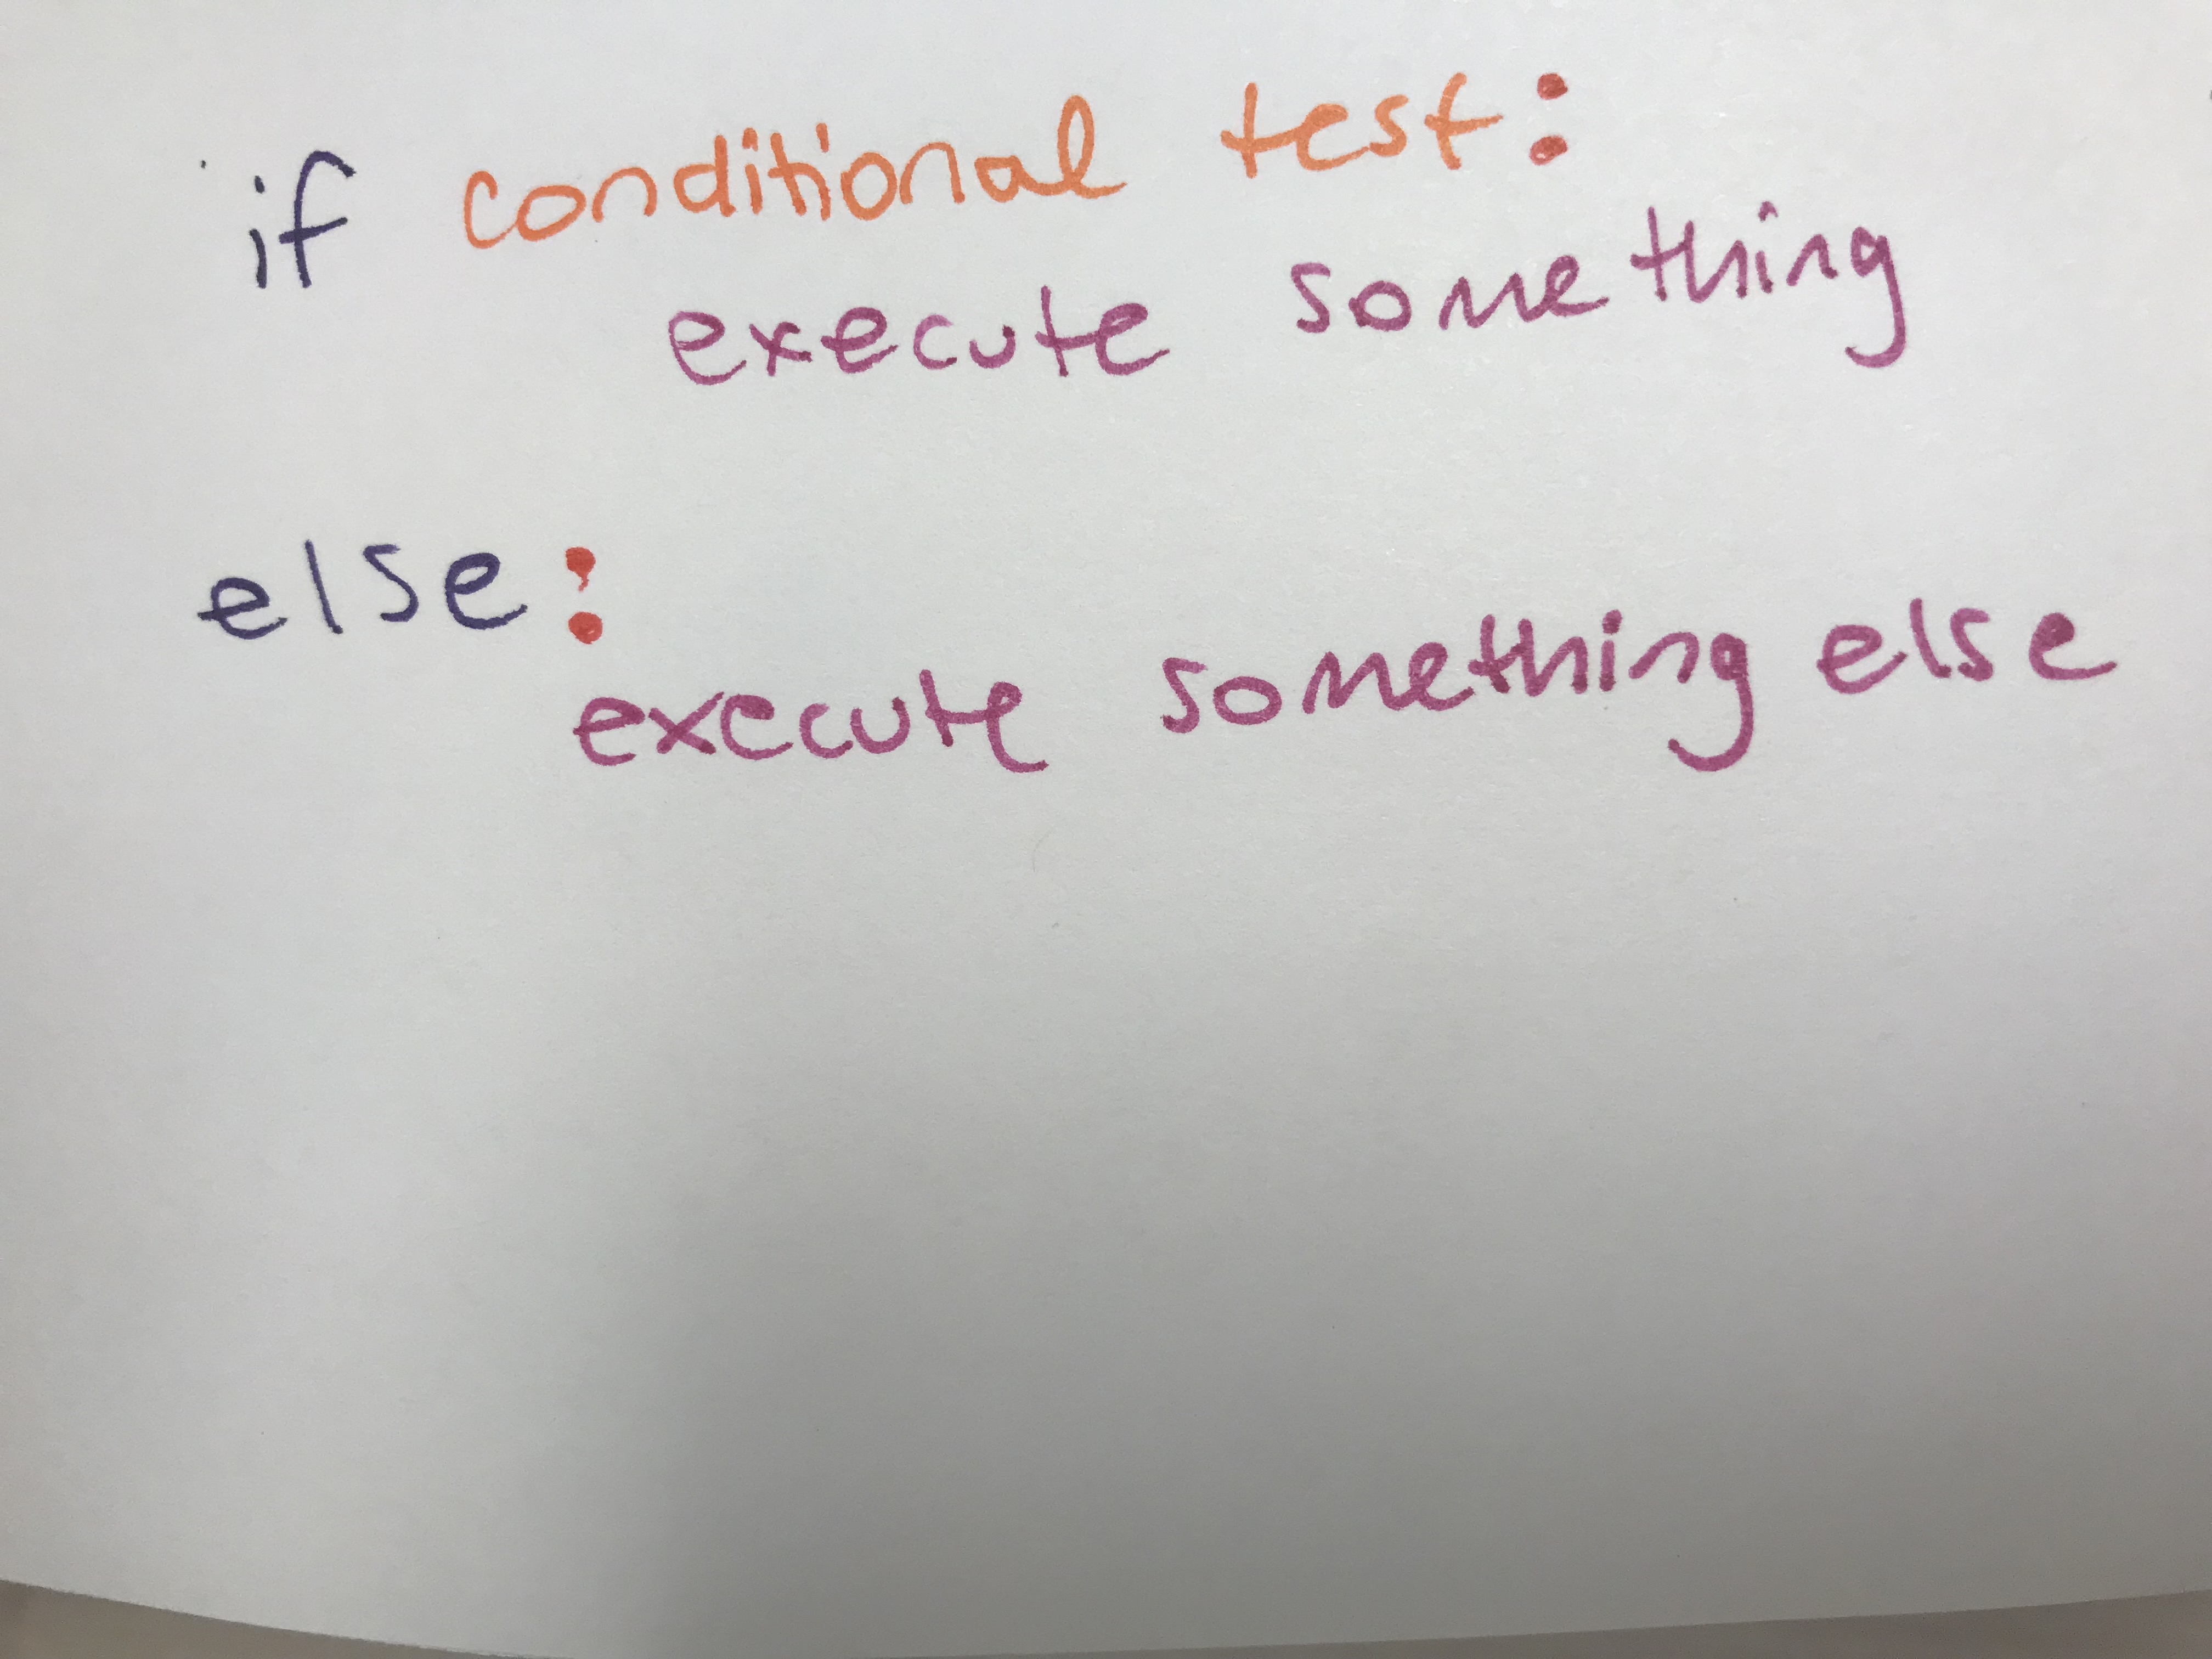 if conditional test:
execute something
else:
execute something else